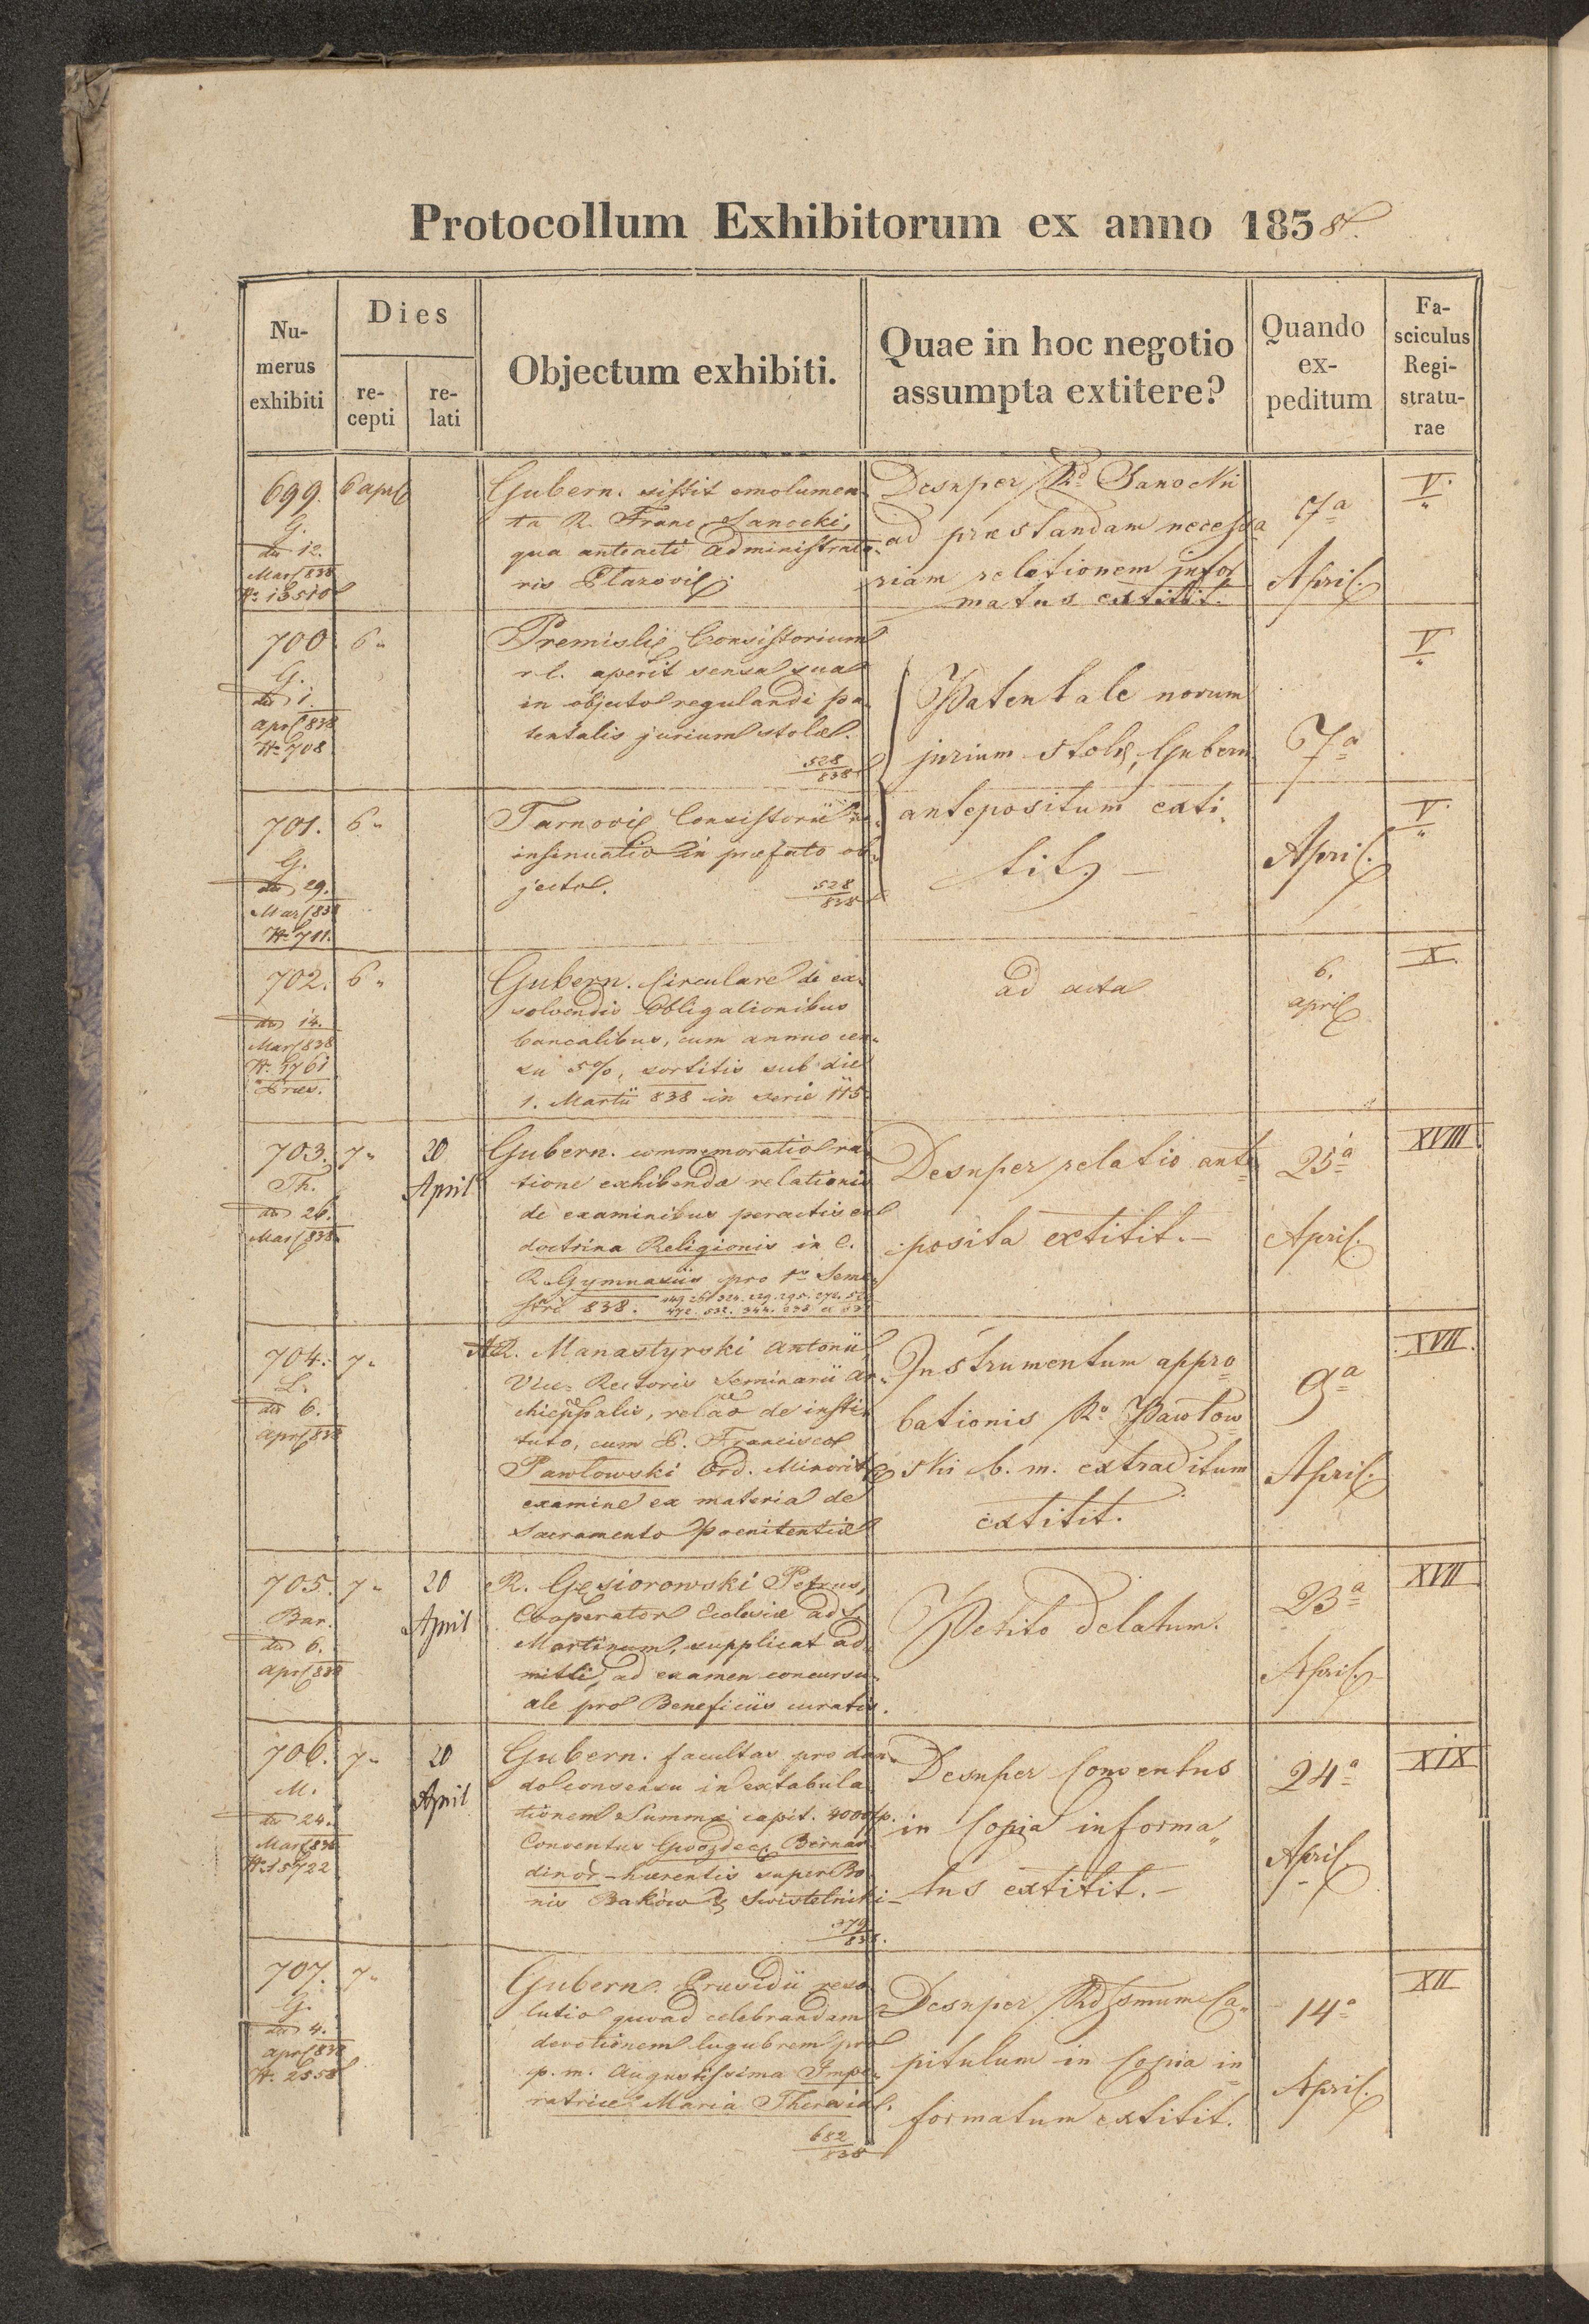 Protocollum Exhibitorum ex anno 1838.
Nu-
merus
exhibiti
Dies
re-
cepti
re-
lati
Objectum exhibiti.
Quae in hoc negotio
assumpta extitere?
Quando
ex-
peditum
Fa-
sciculus
Regi-
stratu-
rae
699.
G.
dto 12.
Mar. 838
N. 13510
6 april
Gubern. sistit emolumen-
ta R. Franc. Sanocki,
qua anteacti Administrato-
ris
Desuper Rd Sanocki
ad præstandam necessa
riam relationem infor
matus extitit.
7a
April.
V.
700
G.
dto 1.
Apr. 838
N. 708
6 "
Premisliæ Consistorium
r. l. aperit sensa sua
in objecto regulandi pa-
tentalis jurium stolæ.
528
838
Patentale norum
jurium stolæ, Gubern
antepositum exti-
tit,
7a
April.
V.
701.
G.
dto 29.
Mar. 838
N. 711.
6 "
Tarnoviæ Consistorii
insinuatio in præfato ob-
jecto.
528
838
V.
702.
dto 14.
Mar. 838
N. 3761
Præs.
6 "
Gubern. Circulare de ex-
solvendis Obligationibus
bancalibus, cum annuo cen-
su 5%, sortitis sub die
1. Martii 838 in serie 115
ad acta
6.
april
X.
703.
Th.
dto 26.
Mar. 838
7 "
20
April
Gubern. commemoratio ra-
tione exhibenda relationis
de examinibus peractis ex
doctrina Religionis in C.
R. Gymnasiis pro 1mo Seme-
stri 838.
Desuper relatio ante
posita extitit.-
25a
April.
XVIII
704.
L.
dto 6.
Apr. 838
7 "
AR. Manastyrski Antonii,
Vice-Rectoris Seminarii Ar-
chieppalis, relao de insti-
tuto, cum P. Francisco
Pawłowski Ord. Minorit.
examine ex materia de
Sacramento Poenitentiæ
Instrumentum appro
bationis Ro Pawłow
ski b. m. extraditum
extitit.
9a
April.
XVII.
705.
Bar.
dto 6.
Apr. 838
7 "
20
April
R. Gęsiorowski Petrus,
Cooperator Ecclesiæ ad S.
Martinum, supplicat ad-
mitti, ad examen concursu-
ale pro Beneficiis curatis.
Petito delatum.
23a
April.
XVII
706.
M.
dto 24.
Mar. 838
N. 15722
7 "
20
April
Gubern. facultas pro dan-
do consensu in extabula
tionem Summæ capit. 4000 fp.
Conventus Gwozdec. Bernar
dinor-hærentis super Bo
nis Baków & Swistelniki
838.
Desuper Conventus
in Copia informa"
tus extitit.-
24a
April
XIX
707.
G.
dto 4.
Apr. 838
N. 2558
7 "
Gubern. Præsidii reso
lutio quoad celebrandam
devotionem lugubrem pro
p. m. Augustissima Impe-
ratrice Maria Theresia.
682
838
Desuper Rdssmum Ca-
pitulum in Copia in
formatum extitit.
14a
April.
XII